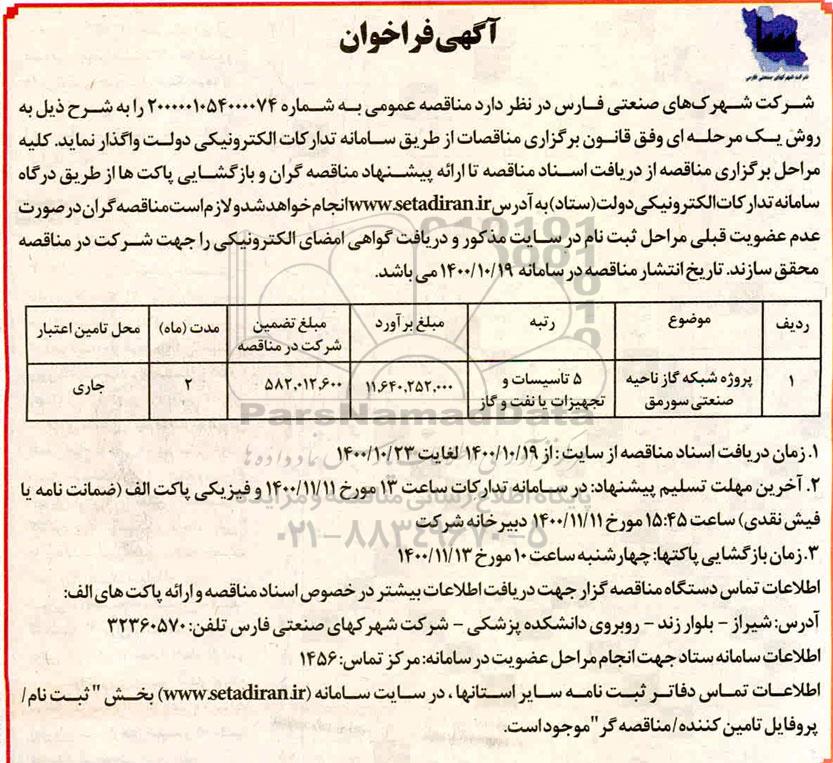 شرکت شهرکهای صنعتی فارس
آگهی فراخوان
شرکت شهرک‌های صنعتی فارس در نظر دارد مناقصه عمومی به شماره ۲۰۰۰۰۰۱۰۵۴۰۰۰۰۷۴ را به شرح ذیل به
روش یک مرحله ای وفق قانون برگزاری مناقصات از طریق سامانه تدارکات الکترونیکی دولت واگذار نماید. کلیه
مراحل برگزاری مناقصه از دریافت اسناد مناقصه تا ارائه پیشنهاد مناقصه گران و بازگشایی پاکت ها از طریق درگاه
سامانه تدارکات الکترونیکی دولت (ستاد) به آدرس www.setadiran.ir انجام خواهد شد و لازم است مناقصه گران در صورت
عدم عضویت قبلی مراحل ثبت نام در سایت مذکور و دریافت گواهی امضای الکترونیکی را جهت شرکت در مناقصه
محقق سازند. تاریخ انتشار مناقصه در سامانه ۱۴۰۰/۱۰/۱۹ می باشد.
ردیف موضوع رتبه مبلغ برآورد مبلغ تضمین شرکت در مناقصه مدت (ماه) محل تامین اعتبار
۱ پروژه شبکه گاز ناحیه صنعتی سورمق ۵ تاسیسات و تجهیزات یا نفت و گاز ۱۱,۶۴۰,۲۵۲,۰۰۰ ۵۸۲,۰۱۲,۶۰۰ ۲ جاری
ParsNamadData
پایگاه اطلاع رسانی مناقصه و مزایده
۰۲۱-۸۸۳۴۹۶۷۰-۵
۱. زمان دریافت اسناد مناقصه از سایت : از ۱۴۰۰/۱۰/۱۹ لغایت ۱۴۰۰/۱۰/۲۳
۲. آخرین مهلت تسلیم پیشنهاد: در سامانه تدارکات ساعت ۱۳ مورخ ۱۴۰۰/۱۱/۱۱ و فیزیکی پاکت الف (ضمانت نامه یا
فیش نقدی) ساعت ۱۵:۴۵ مورخ ۱۴۰۰/۱۱/۱۱ دبیرخانه شرکت
۳. زمان بازگشایی پاکتها: چهارشنبه ساعت ۱۰ مورخ ۱۴۰۰/۱۱/۱۳
اطلاعات تماس دستگاه مناقصه گزار جهت دریافت اطلاعات بیشتر در خصوص اسناد مناقصه و ارائه پاکت های الف:
آدرس: شیراز – بلوار زند – روبروی دانشکده پزشکی – شرکت شهرکهای صنعتی فارس تلفن: ۳۲۳۶۰۵۷۰
اطلاعات سامانه ستاد جهت انجام مراحل عضویت در سامانه: مرکز تماس: ۱۴۵۶
اطلاعات تماس دفاتر ثبت نامه سایر استانها ، در سایت سامانه (www.setadiran.ir) بخش "ثبت نام/
پروفایل تامین کننده/مناقصه گر" موجود است.